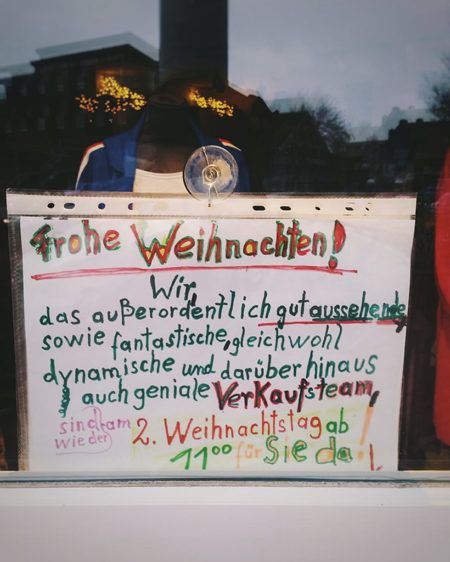 Frohe Weihnachten!
Wir,
das außerordentlich gut aussehende,
sowie fantastische, gleichwohl
dynamische und darüber hinaus
auch geniale Verkaufsteam,
sind am 2. Weihnachtstag ab
wieder 11⁰⁰ für Sie da!